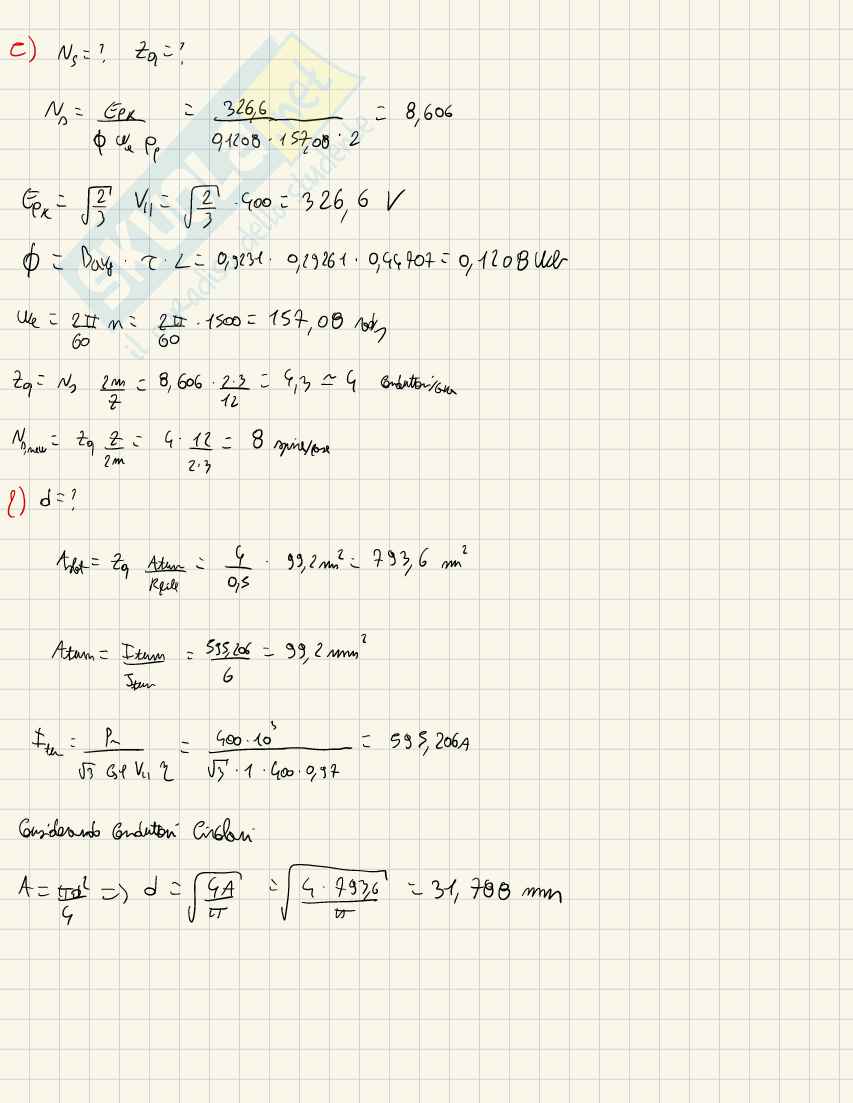 e) Ns = ? Zq = ?
Ns = Epk / (ϕ ωe pp) = 326,6 / (0,1208 · 157,08 · 2) = 8,606
Epk = √(2/3) V11 = √(2/3) · 400 = 326,6 V
ϕ = Bavg · τ · L = 0,9231 · 0,29261 · 0,44707 = 0,1208 Wb
ωe = 2π/60 n = 2π/60 · 1500 = 157,08 rad/s
Zq = Ns 2m/Z = 8,606 · 2·3/12 = 4,3 ≃ 4 Conduttori/cava
Ns,new = Zq Z/2m = 4 · 12/2·3 = 8 spire/fase
f) d = ?
Aslot = Zq Aturn/Kfill = 4/0,5 · 99,2 mm² = 793,6 mm²
Aturn = Iturn/Jturn = 595,206/6 = 99,2 mm²
Itur = Pn / (√3 cosφ V11 η) = 400·10³ / (√3 · 1 · 400 · 0,97) = 595,206A
Considerando Conduttori Circolari
A = πd²/4 => d = √(4A/π) = √(4 · 793,6/π) = 31,788 mm
SKUOLA.net
il paradiso dello studente